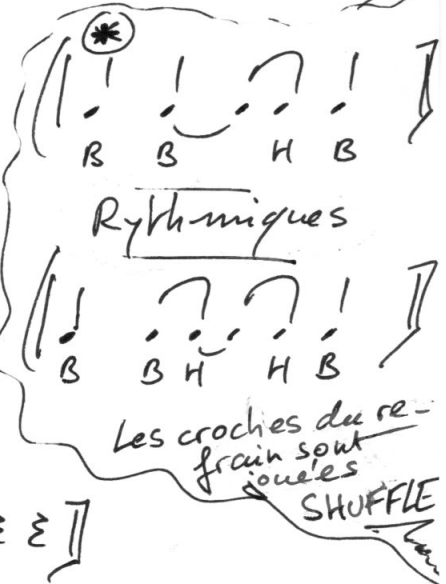 B B H B
Rythmiques
B B H H B
Les croches du re-
frain sont
jouées
SHUFFLE